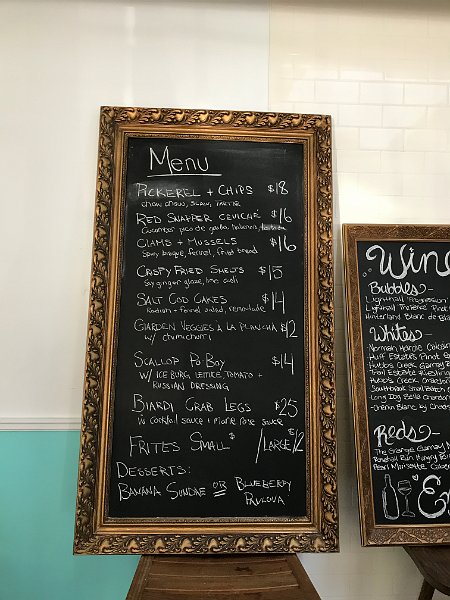 Menu
PICKEREL + CHIPS $18
chow chow, slaw, tartar
RED SNAPPER CEVICHE $16
Cucumber pico de gallo, habanero, tostada
CLAMS + MUSSELS $16
fennel, fried bread
CRISPY FRIED SMELTS $15
Soy ginger glaze, lime aioli
SALT COD CAKES $14
Radish + fennel salad, remoulade
GARDEN VEGGIES A LA PLANCHA $12
w/ chimichurri
SCALLOP PO BOY $14
w/ ICE BURG LETTUCE, TOMATO +
RUSSIAN DRESSING
BIARDI CRAB LEGS $25
w/ Cocktail sauce + Marie Rose sauce
FRITES SMALL $ /LARGE $12
DESSERTS:
BANANA SUNDAE OR BLUEBERRY
PAVLOVA
Wine
Bubbles -
Lighthall Progression
Lighthall
Hinterland Blanc de
Whites -
Norman Hardie Calcaire
Huff Estates Pinot
Hubb's Creek
Trail Estate Riesling
Hubb's Creek
Long Dog Bella Chardonnay
Chenin Blanc by
Reds -
The Grange
Rosehall Run Hungry Point
Pearl Morissette